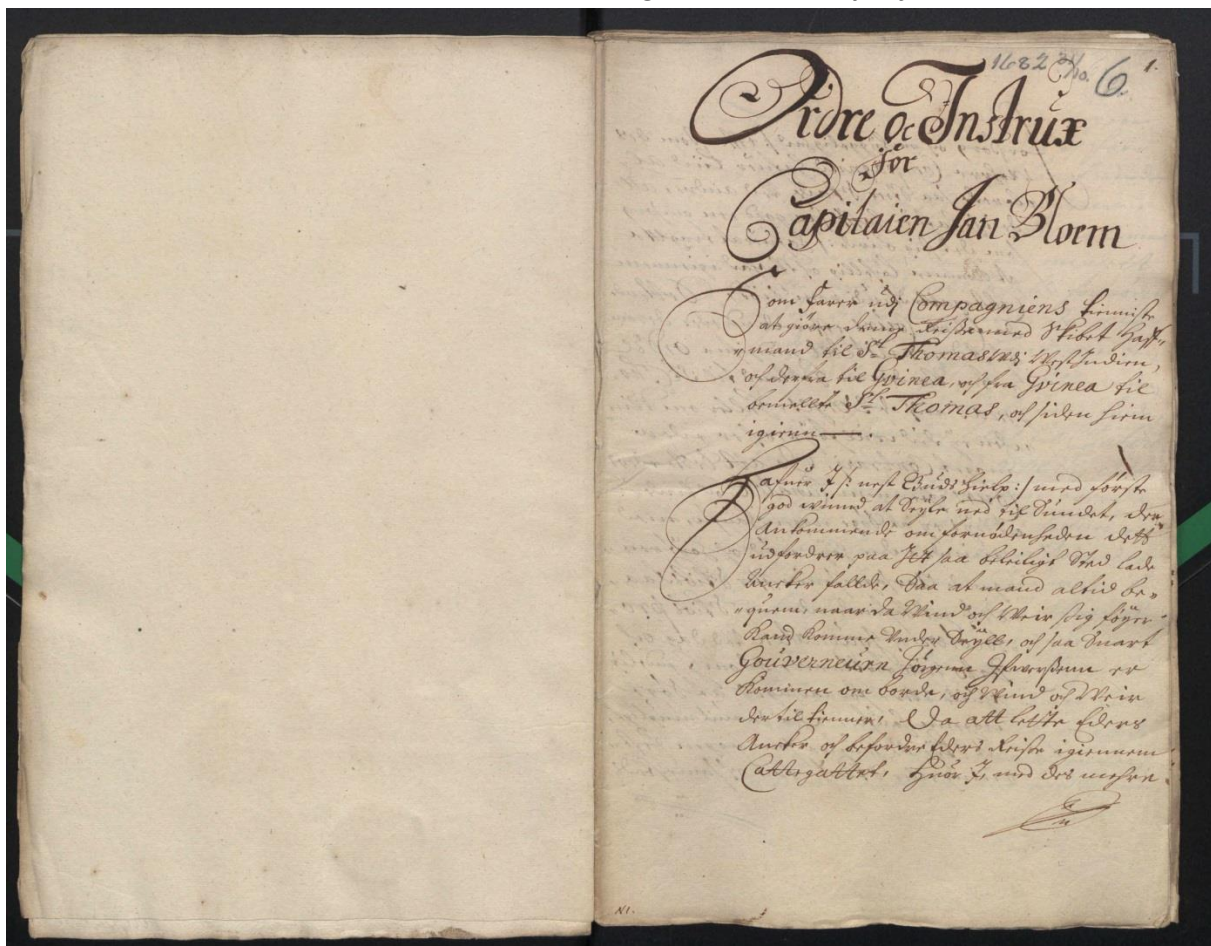 1682 31/10. 6. 1.
Ordre oc Instrux
for
Capitaien Jan Bloem
Som farer udj Compagniens tienniste
at giöre denne Reise med Skibet Haff-
mand til St. Thomas udj West Indien,
och derfra til Gvinea, och fra Gvinea til
bemelte St. Thomas, och siden hiem
igienn
Hafuer J /: nest Guds hielp :/ med förste
god winnd at Seyle ned til Sundet, der
Ankommende om fornödenheden dett
udfordrer paa Jet saa beleiligt Sted lade
Ancker fallde, Saa at mand altid be-
quem, naar da Wind och Weir sig föyer
Kand Komme Under Seyll, och saa Snart
Gouverneurn Jörgenn Ifwersenn er
Kommen om borde, och Wind och Weir
dertil tienner, Da att lette Eders
Ancker och befordre Eders Reise igiennem
Cattegattet, Huor J, med des mehre
N1.